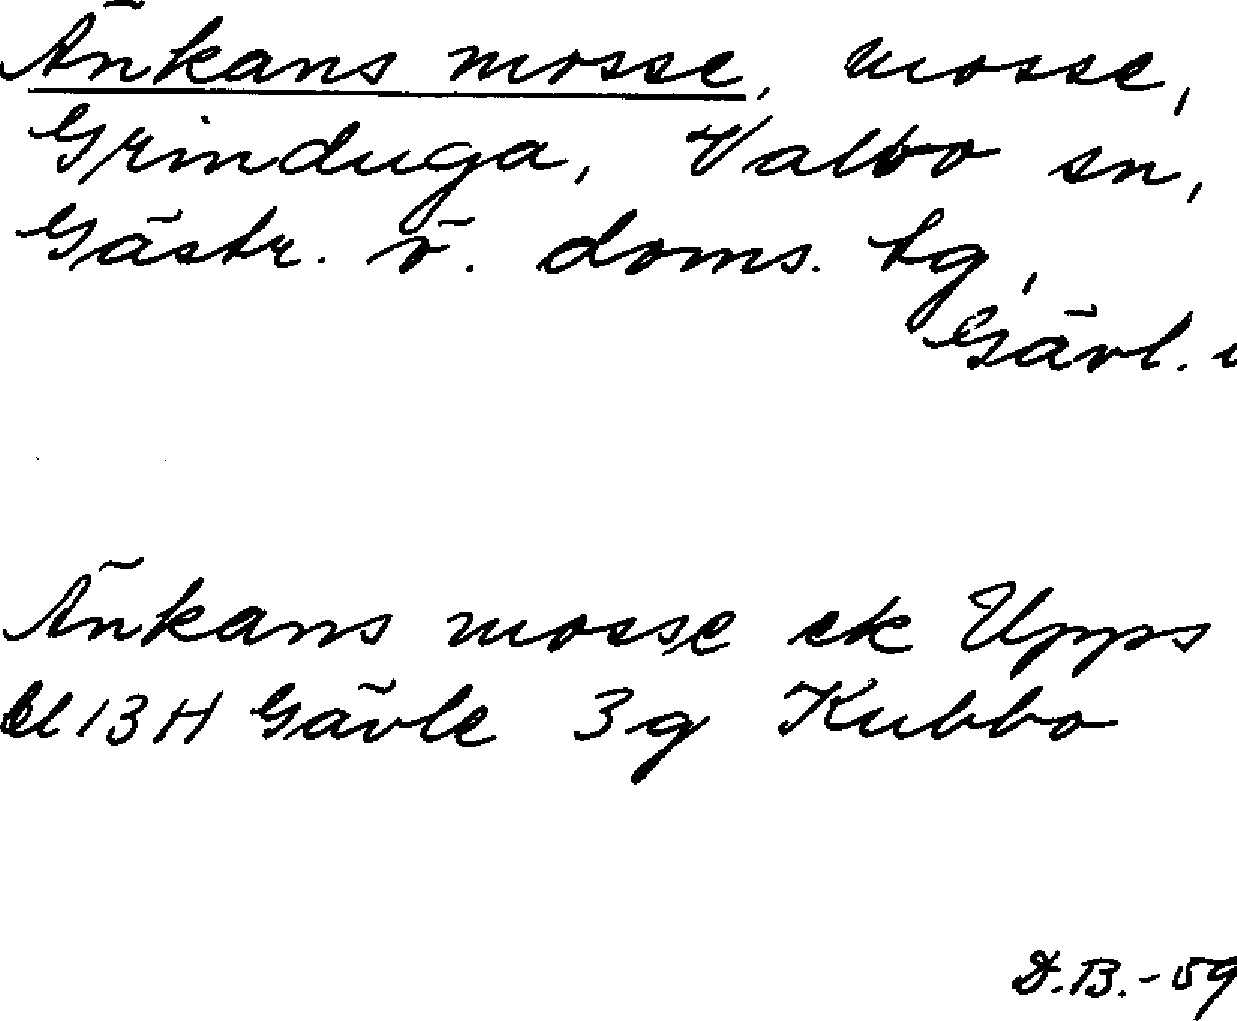 Änkans mosse, mosse,
Grinduga, Valbo sn,
Gästr. ö. doms. tg,
Gävl.
Änkans mosse ek Upps
bl 13 H Gävle 3g Kubbo
D.B.-59